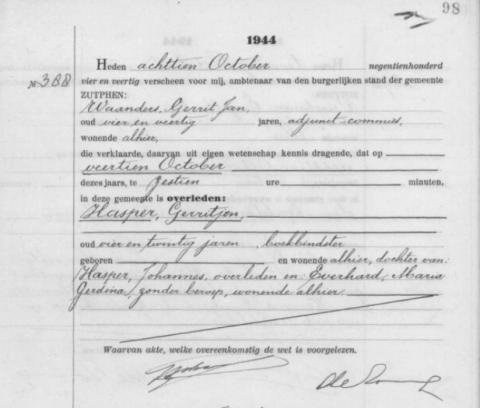 98
1944
Heden achttien October negentienhonderd
No 388 vier en veertig verscheen voor mij, ambtenaar van den burgerlijken stand der gemeente
ZUTPHEN:
Waanders, Gerrit Jan,
oud vier en veertig jaren, adjunct-commies,
wonende alhier,
die verklaarde, daarvan uit eigen wetenschap kennis dragende, dat op
veertien October
dezes jaars, te zestien ure minuten,
in deze gemeente is overleden:
Hasper, Gerritjen,
oud vier en twintig jaren boekbindster
geboren en wonende alhier, dochter van:
Hasper, Johannes, overleden en Everhard, Maria
Gerdina, zonder beroep, wonende alhier.
Waarvan akte, welke overeenkomstig de wet is voorgelezen.